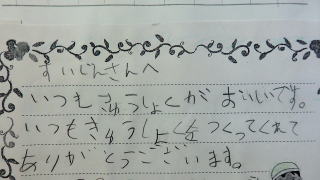 すいじんさんへ
いつもきゅうしょくがおいしいです。
いつもきゅうしょくをつくってくれて
ありがとうございます。